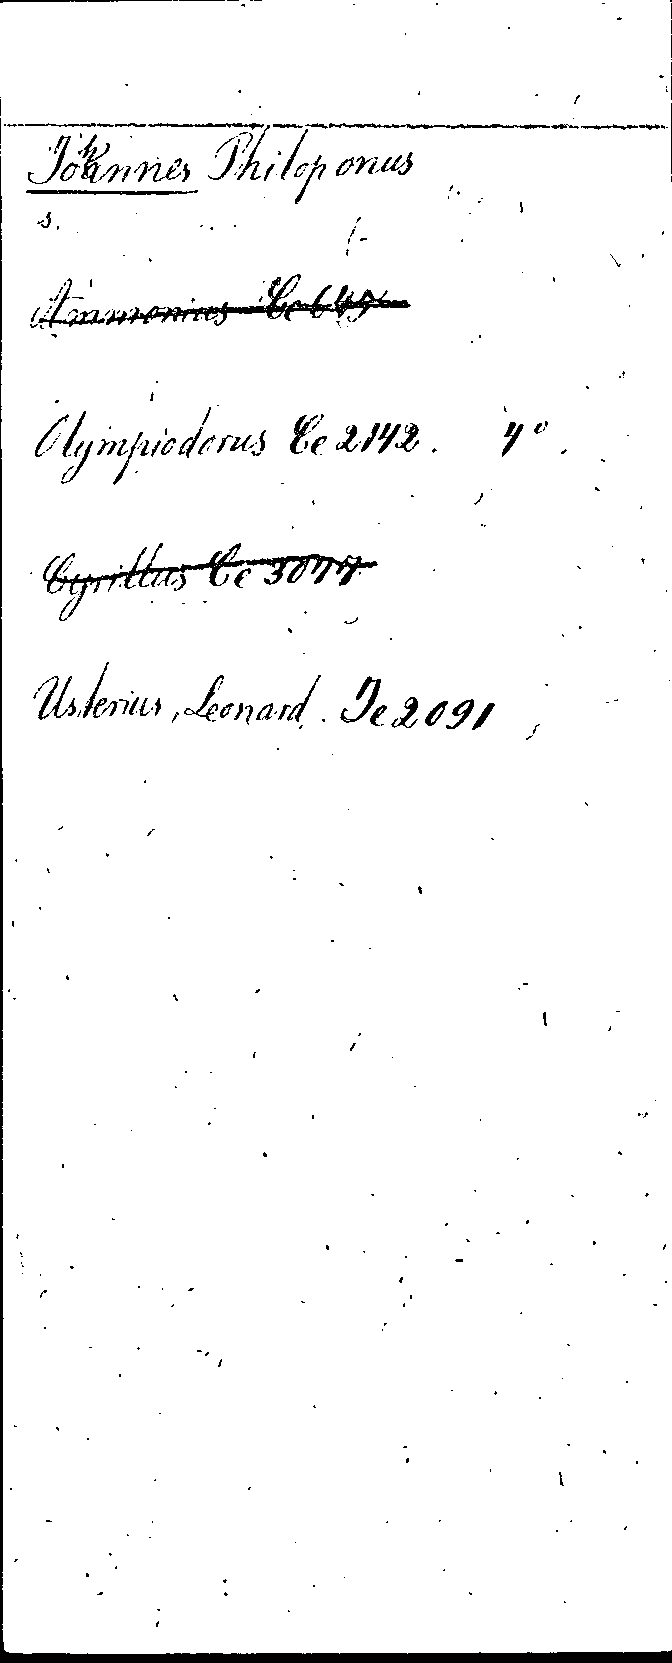 Johannes Philoponus
s.
Ammonius Ce 645
Olympiodorus Ce 2142. 4°.
Cyrillus Ce 3077
Usterius, Leonard. Je 2091